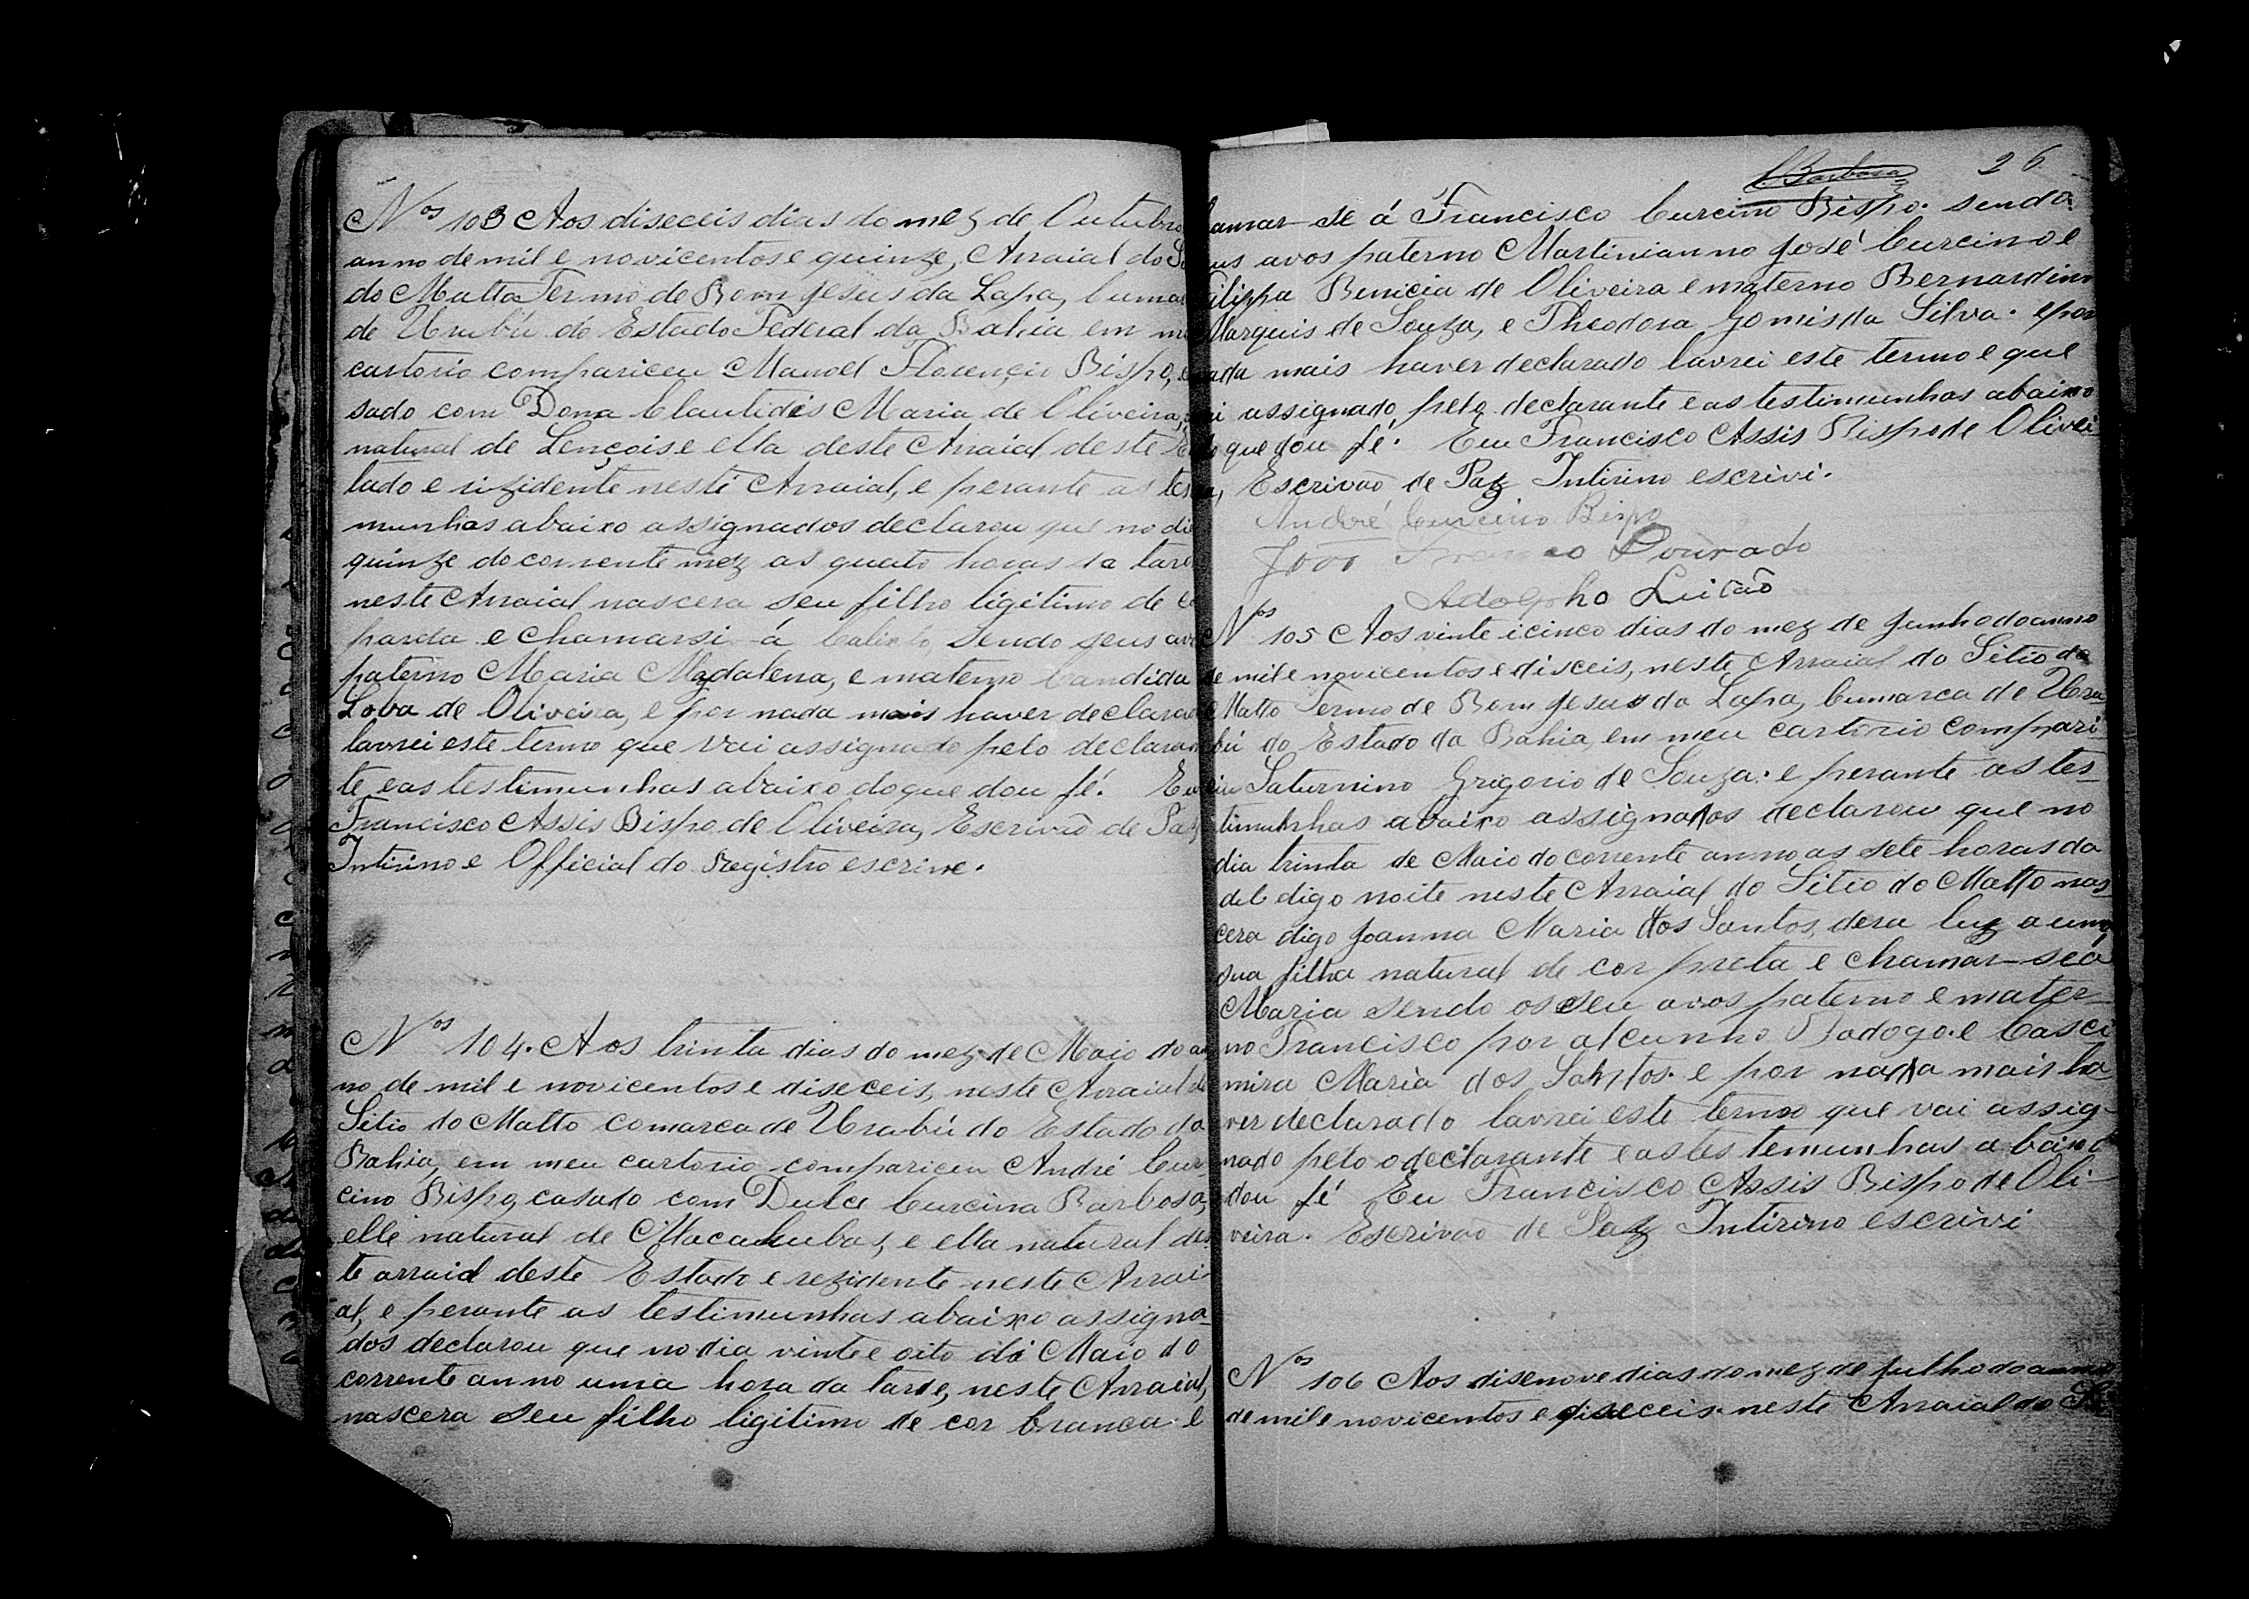 Nos 103 Aos diseceis dias do mez de Outubro
anno de mil e novicentos e quinze, Arraial do
do Matto Termo de Bom Jesus da Lapa, Cuma
de Urubú do Estado Federal da Bahia em m
cartorio compariceu Manoel Florencio Bispo,
sado com Dona Clautides Maria de Oliveira,
natural de Lençois e ella deste Arraial deste
tado e rizidente neste Arraial, e perante as tes
munhas abaixo assignados declarou que no di
quinze do corrente mez as quato horas da tard
neste Arraial nascera seu filho ligitimo de
parda e chamarsi-á Calixto, sendo seus avo
paterno Maria Magdalena, e materno Candida
Loba de Oliveira, e por nada mais haver declara
lavrei este termo que vai assignado pelo declaran
te e as testimunhas abaixo do que dou fé. Eu
Francisco Assis Bispo de Oliveira, Escrivão de Paz,
Intirino e Official do Registro escrive.
Nos 104. Aos trinta dias do mez de Maio do an
no de mil e novicentos e diseceis, neste Arraial do
Sitio do Matto comarca de Urubú do Estado da
Bahia, em meu cartorio compariceu André Cur
cino Bispo, casado com Dulce Curcina Barbosa,
elle natural de Macahubas, e ella natural des
te arraial deste Estado e rezidente neste Arrai
al, e perante as testimunhas abaixo assigna
dos declarou que no dia vinte e oito de Maio do
corrente anno uma hora da tarde, neste Arraial,
nascera seu filho ligitimo de cor branca e
C. Barbosa
26
hamar-se á Francisco Curcino Bispo. sendo
eus avos paterno Martinianno José Curcino e
Filippa Benicia de Oliveira e materno Bernardino
Marquis de Souza, e Theodora Gomis da Silva. e por
nada mais haver declarado lavrei este termo e que
vai assignado pelo declarante e as testimunhas abaixo
do que dou fé. Eu Francisco Assis Bispo de Olivei
ra, Escrivão de Paz Intirino escrivi.
André Curcino Bispo
João Francisco Dourado
Adolpho Leitão
Nos 105 Aos vinte i cinco dias do mez de Junho do anno
de mil e novicentos e disceis, neste Arraial do Sitio do
Matto Termo de Bom Jesus da Lapa, Cumarca de Uru
bú do Estado da Bahia, em meu cartorio compari
ciu Saturnino Grigorio de Souza. e perante as tes
timunhas abaixo assignados declarou que no
dia trinta de Maio do corrente anno as sete horas da
del digo noite neste Arraial do Sitio do Matto nas
cera digo Joanna Maria dos Santos, dera luz a uma
sua filha natural de cor preta e chamar-seá
Maria sendo os seu avos paterno e mater
no Francisco por alcunho Badogo. e Casci
mira Maria dos Santos. e por nada mais ha
ver declarado lavrei este termo que vai assig
nado pelo o declarante e as testemunhas abaixo
dou fé Eu Francisco Assis Bispo de Oli-
veira. Escrivão de Paz Intirino escrivi
Nos 106 Aos disenove dias do mez de Julho do anno
de mil e novicentos e diseceis. neste Arraial do Si